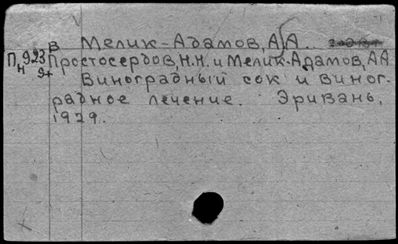 в Мелик-Адамов, А.А.
П923 Простосердов, Н.Н. и Мелик-Адамов, АА
н 9+ Виноградный сок и виног-
радное лечение. Эривань,
1929.